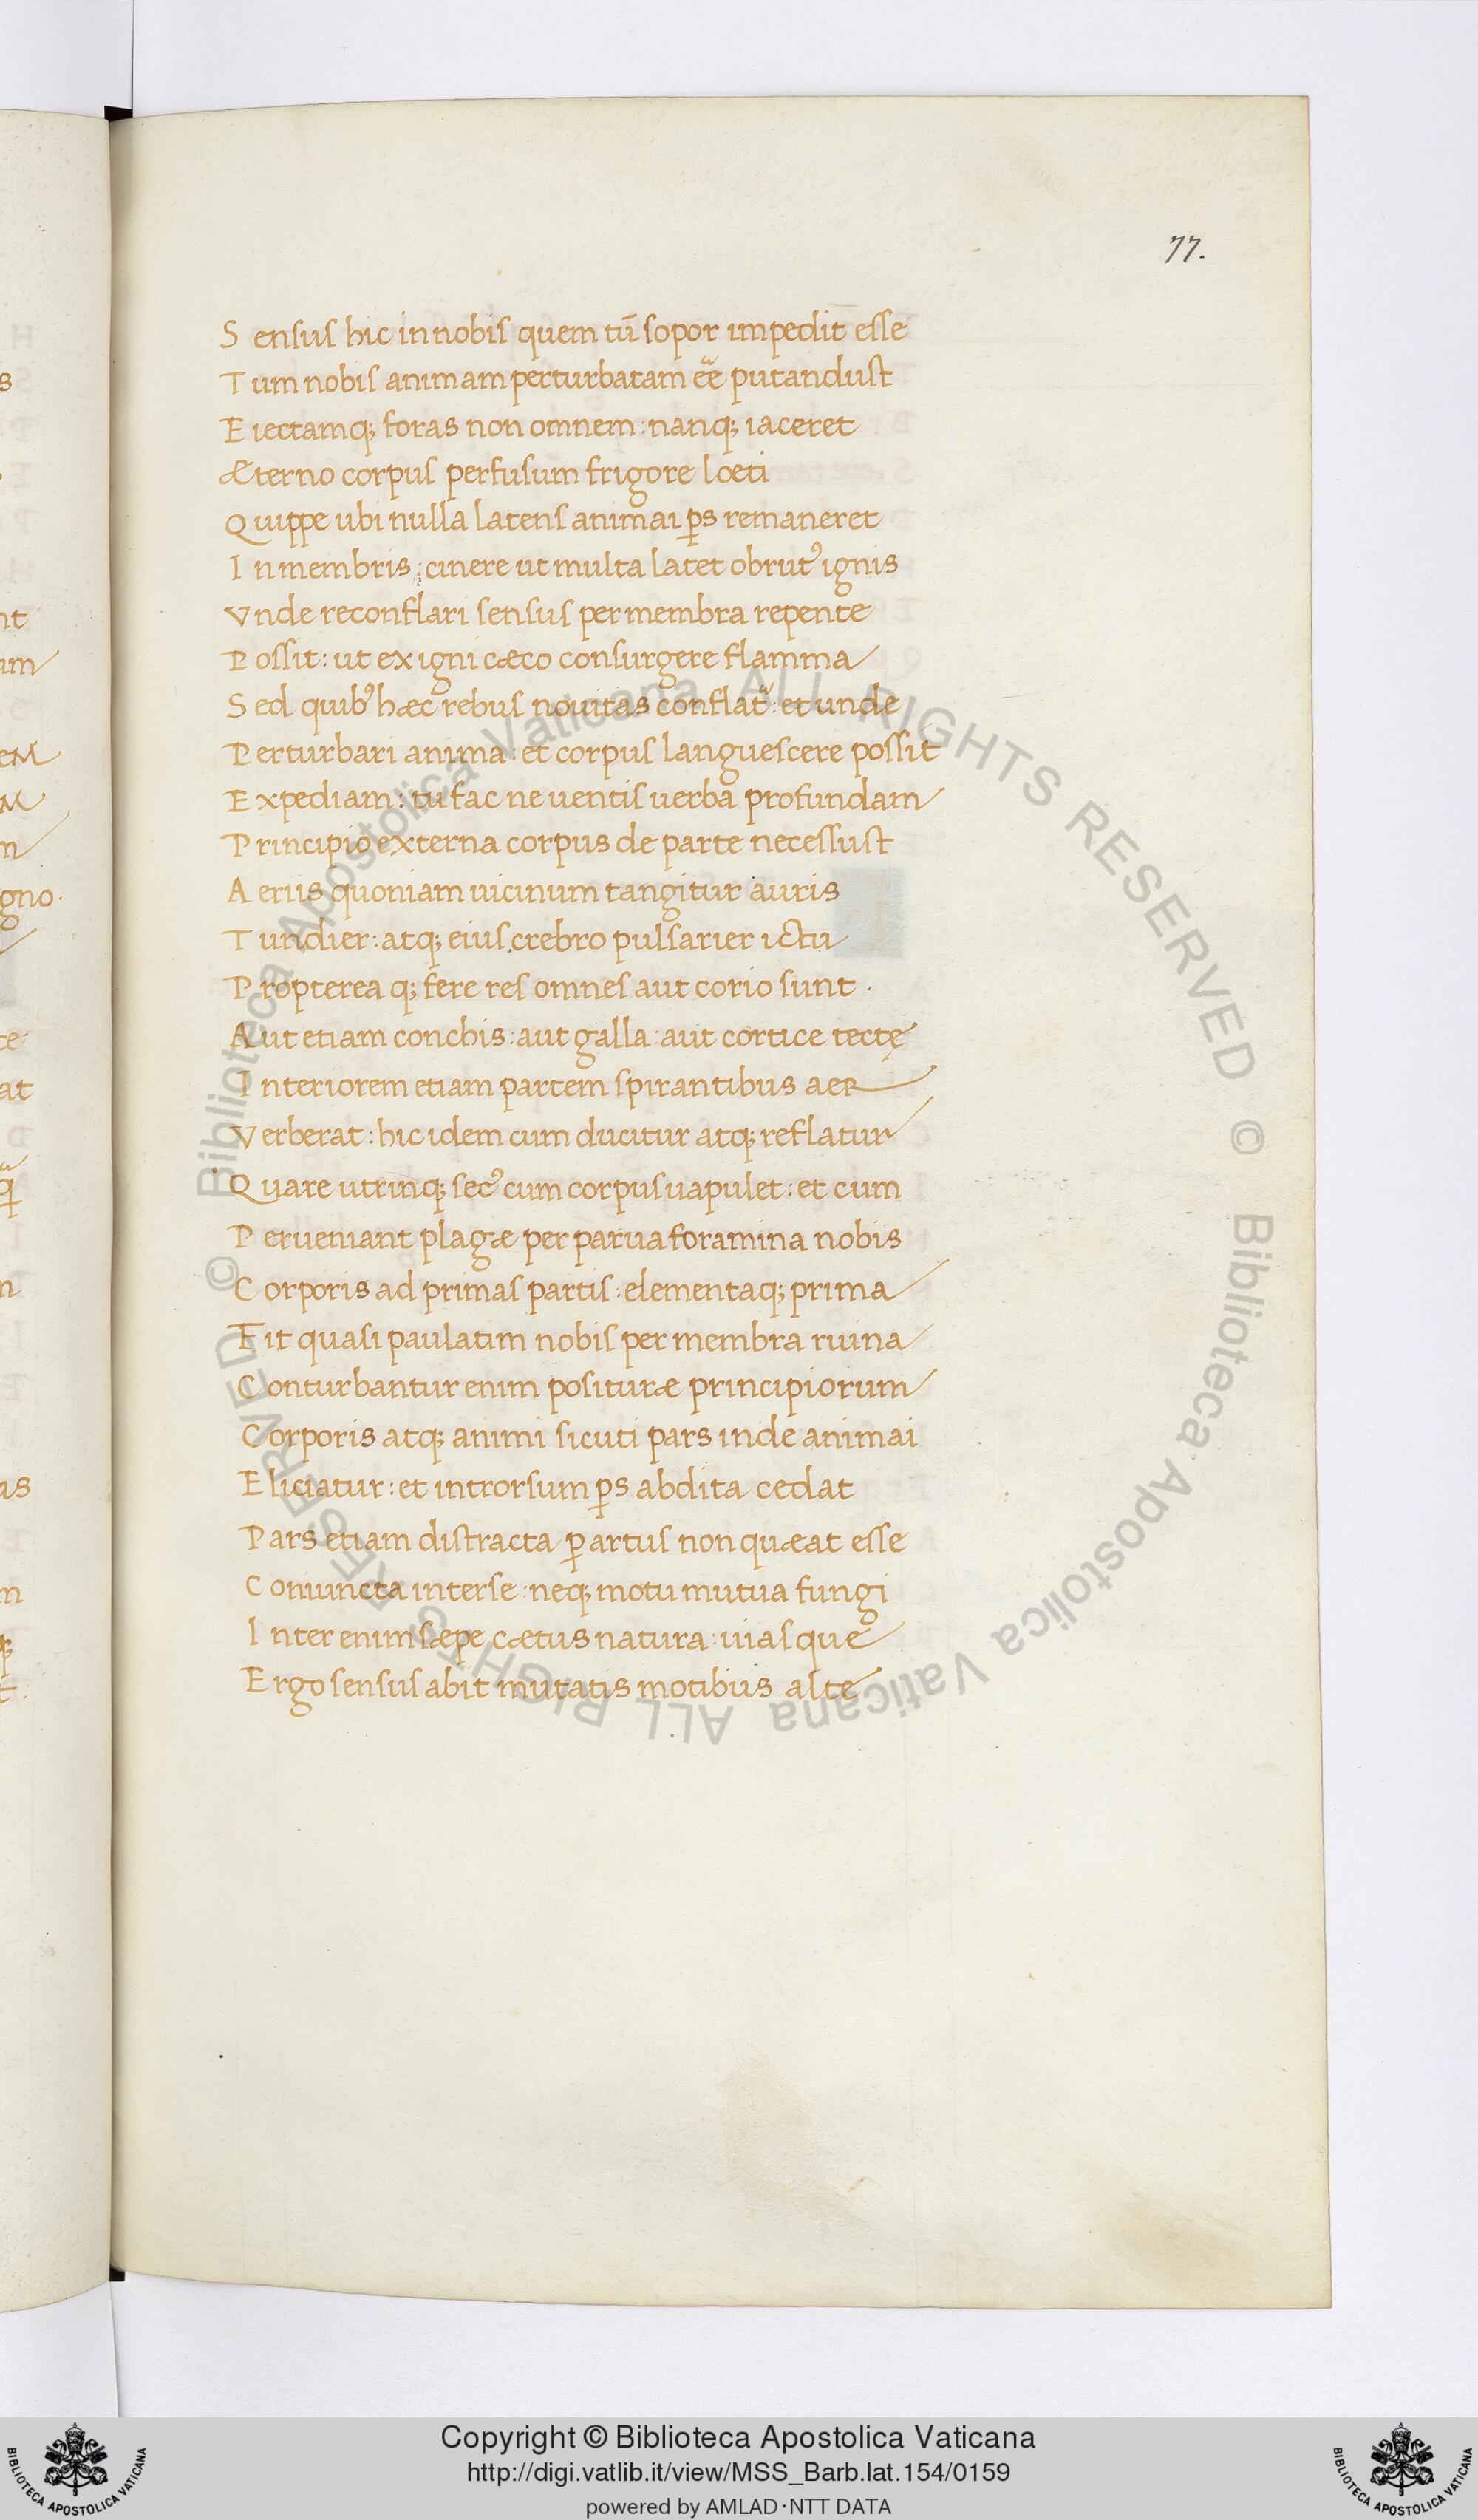 77.
Sensus hic in nobis quem tū sopor impedit esse
Tum nobis animam perturbatam ee͂ putandust
Eiectamq; foras non omnem: nanq; iaceret
Æterno corpus perfusum frigore loeti
Quippe ubi nulla latens animai ꝑs remaneret
In membris; cinere ut multa latet obrutꝰ ignis
Vnde reconflari sensus per membra repente
Possit: ut ex igni cæco consurgere flamma
Sed quibꝰ hæc rebus nouitas conflat᷑: et unde
Perturbari anima: et corpus languescere possit
Expediam: tu fac ne uentis uerba profundam
Principio externa corpus de parte necessust
Aeriis quoniam uicinum tangitur auris
Tundier: atq; eius crebro pulsarier ictu
Propterea q; fere res omnes aut corio sunt .
Aut etiam conchis: aut galla: aut cortice tectę
Interiorem etiam partem spirantibus aer
Verberat: hic idem cum ducitur atq; reflatur
Quare utrinq; secꝰ cum corpus uapulet: et cum
Perueniant plagæ per parua foramina nobis
Corporis ad primas partis: elementaq; prima
Fit quasi paulatim nobis per membra ruina
Conturbantur enim posituræ principiorum
Corporis atq; animi sicuti pars inde animai
Eliciatur: et introrsum ꝑs abdita cedat
Pars etiam distracta ꝑ artus non quæat esse
Coniuncta inter se: neq; motu mutua fungi
Inter enim sæpe cætus natura: uiasque
Ergo sensus abit mutatis motibus alte
Copyright © Biblioteca Apostolica Vaticana
http://digi.vatlib.it/view/MSS_Barb.lat.154/0159
powered by AMLAD·NTT DATA